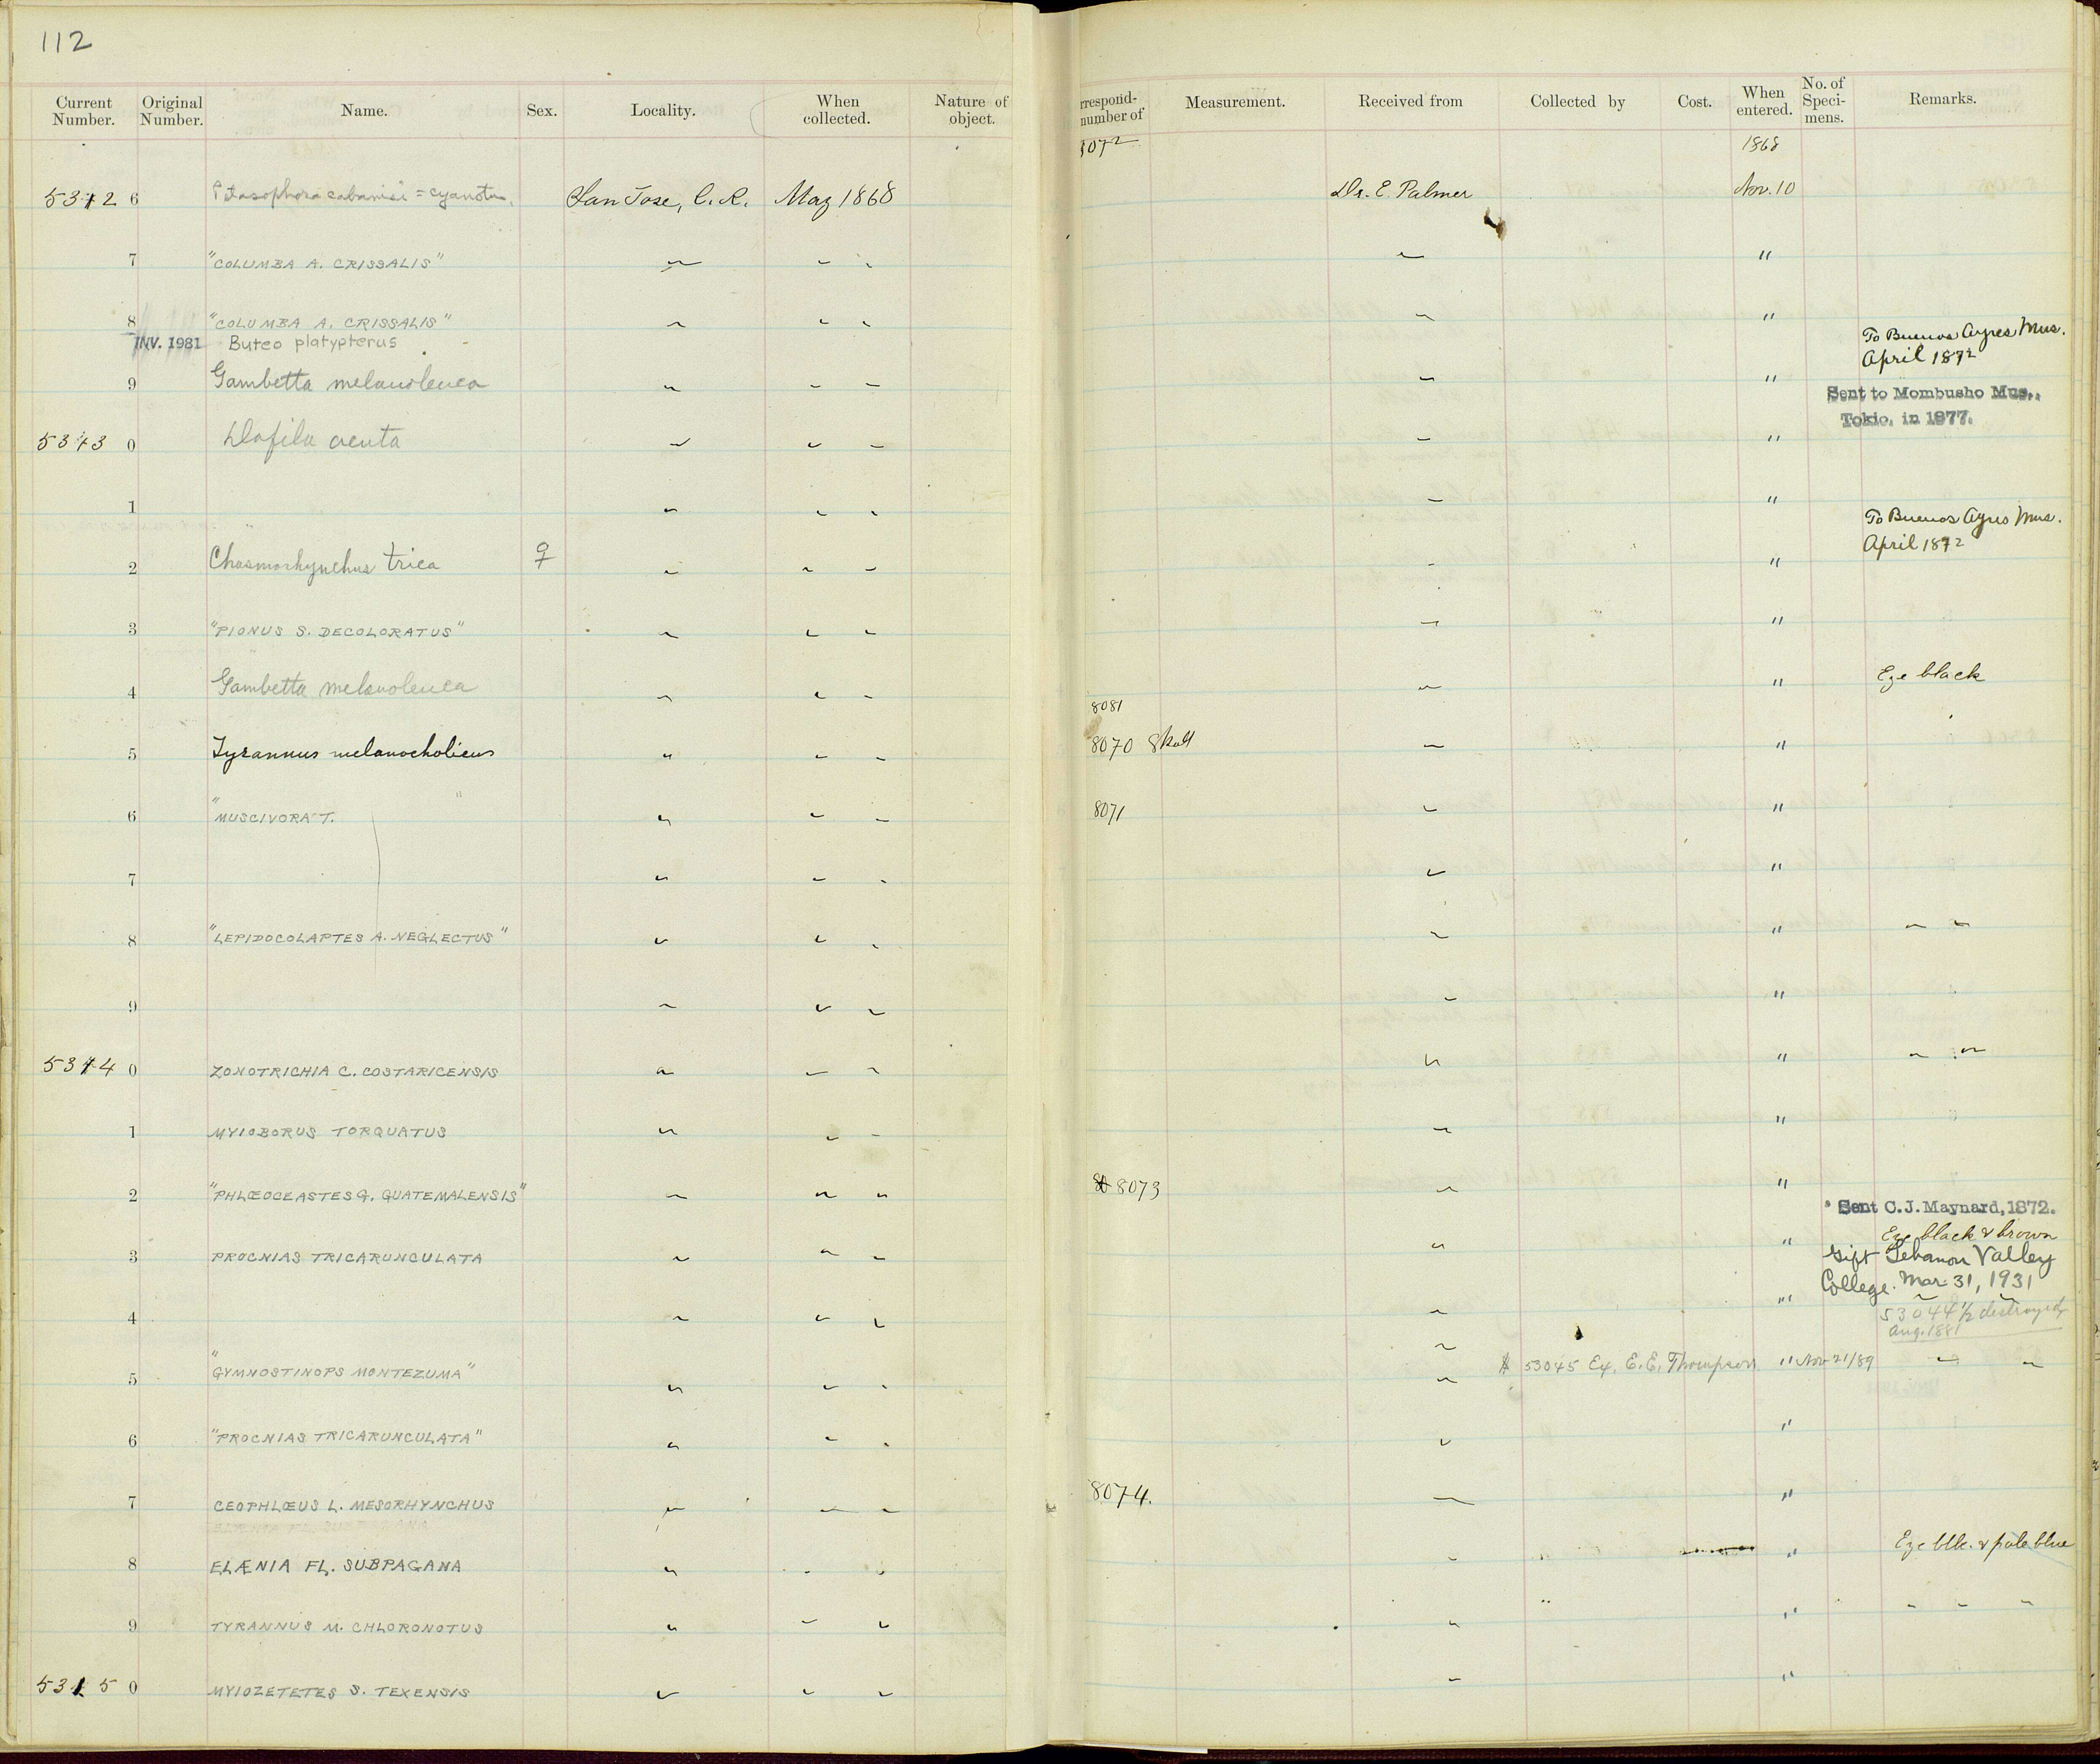 112
Current Number. Original Number. Name. Sex. Locality. When collected. Nature of object. rrespond- number of Measurement. Received from Collected by Cost. When entered. No. of Speci- mens. Remarks.
8072 1868
5312 6 Petasophora cabanisi = cyanotus. San Jose, C.R. May 1868 Dr. E. Palmer Nov. 10
7 "COLUMBA A. CRISSALIS" "
8 "COLUMBA A. CRISSALIS" "
INV. 1981 Buteo platypterus To Buenos Ayres Mus.
April 1872
9 Gambetta melanoleuca "
Sent to Mombusho Mus.,
Tokio, in 1877.
5313 0 Dafila acuta "
1 "
To Buenos Ayres Mus.
April 1872
2 Chasmorhynchus trica ♀ "
3 "PIONUS S. DECOLORATUS" "
4 Gambetta melanoleuca " Eye black
8081
5 Tyrannus melanocholicus 8070 Skull "
6 "MUSCIVORA T. " 8071 "
7 "
8 "LEPIDOCOLAPTES A. NEGLECTUS" "
9 "
5314 0 ZONOTRICHIA C. COSTARICENSIS "
1 MYIOBORUS TORQUATUS "
2 "PHLŒOCEASTES G. GUATEMALENSIS" 8073 "
Sent C. J. Maynard, 1872.
3 PROCNIAS TRICARUNCULATA " Eye black & brown
Gift Lebanon Valley
College. Mar. 31, 1931
4 "
53044½ destroyed
Aug. 1881
5 "GYMNOSTINOPS MONTEZUMA" 53045 Ex. E. E. Thompson " Nov 21/89
6 "PROCNIAS TRICARUNCULATA" "
7 CEOPHLŒUS L. MESORHYNCHUS 8074. "
8 ELÆNIA FL. SUBPAGANA " Eye blk. & pale blue
9 TYRANNUS M. CHLORONOTUS "
5315 0 MYIOZETETES S. TEXENSIS "